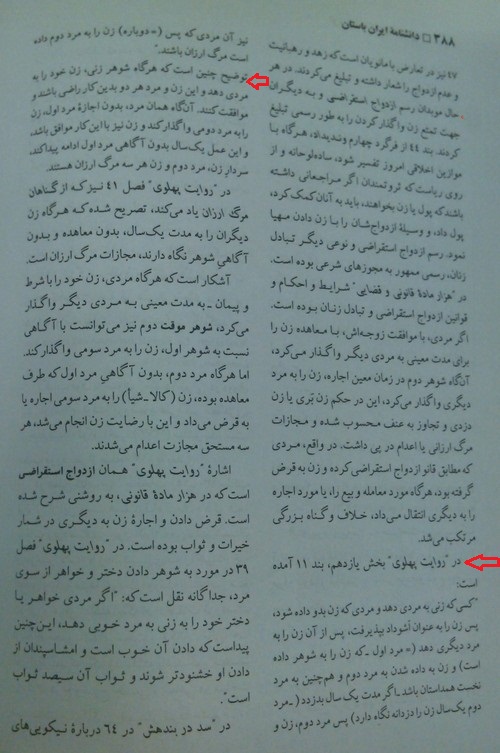 ۳۸۸ □ دانشنامهٔ ایران باستان
۴۷ نیز در تعارض با مانویان است که زهد و رهبانیت
و عدم ازدواج را شعار داشته و تبلیغ می‌کردند. در هر
حال موبدان رسم ازدواج استقراضی و به دیگران
جهت تمتع زن واگذار کردن را به طور رسمی تبلیغ
کردند. بند ۴۴ از فرگرد چهارم وندیداد، هرگاه با
موازین اخلاقی امروز تفسیر شود، ساده‌لوحانه و از
روی ریاست که ثروتمندان اگر مراجعانی داشته
باشند که پول یا زن بخواهند، باید به آنان کمک کرد،
پول داد، و وسیلهٔ ازدواج‌شان را با زن دادن مهیا
نمود. رسم ازدواج استقراضی و نوعی دیگر تبادل
زنان، رسمی ممهور به مجوزهای شرعی بوده است.
در "هزار مادهٔ قانونی و قضایی" شرایط و احکام و
قوانین ازدواج استقراضی و تبادل زنان بوده است.
اگر مردی، با موافقت زوجه‌اش، با معاهده زن را
برای مدت معینی به مرد دیگر واگذار می‌کرد،
آنگاه شوهر دوم در زمان معین اجاره، زن را به مرد
دیگری واگذار می‌کرد، این در حکم زن بَری یا زن
دزدی و تجاوز به عنف محسوب شده و مجازات
مرگ ارزانی یا اعدام در پی داشت. در واقع، مردی
که مطابق قانو ازدواج استقراضی کرده و زن به قرض
گرفته بود، هرگاه مورد معامله و بیع را، یا مورد اجاره
را به دیگری انتقال می‌داد، خلاف و گناه بزرگی
مرتکب می‌شد.
در "روایت پهلوی" بخش یازدهم، بند ۱۱ آمده
است:
"کسی که زنی به مردی دهد و مردی که زن بدو داده شود،
پس زن را به عنوان اَشوداد بپذیرفت، پس از آن زن را به
مرد دیگری دهد (= مرد اول ـ که زن را به شوهر داده
است) و زن به داده شدن به مرد دوم و هم‌چنین به مرد
نخست همداستان باشد ـ اگر مدت یک سال بدزدد (ـ مرد
دوم یک‌سال زن را دزدانه نگاه دارد) پس مرد دوم، زن و
نیز آن مردی که پس (= دوباره) زن را به مرد دوم داده
است مرگ ارزان باشند."
توضیح چنین است که هرگاه شوهر زنی، زن خود را به
مردی دهد و این زن و مرد هر دو بدین کار راضی باشند و
موافقت کنند. آنگاه همان مرد، بدون اجازهٔ مرد اول، زن
را به مرد دومی واگذار کند و زن نیز با این کار موافق باشد،
و این عمل یک‌سال بدون آگاهی مرد اول ادامه پیدا کند،
سردار زن، مرد دوم و زن هر سه مرگ ارزان هستند.
در "روایت پهلوی" فصل ۴۱ نیز که از گناهان
مرگ ارزان یاد می‌کند، تصریح شده که هرگاه زن
دیگران را به مدت یک‌سال، بدون معاهده و بدون
آگاهی شوهر نگاه دارند، مجازات مرگ ارزان است.
آشکار است که هرگاه مردی، زن خود را با شرط
و پیمان ـ به مدت معینی به مردی دیگر واگذار
می‌کرد، شوهر موقت دوم نیز می‌توانست با آگاهی
نسبت به شوهر اول، زن را به مرد سومی واگذار کند.
اما هرگاه مرد دوم، بدون آگاهی مرد اول که طرف
معاهده بوده، زن (کالا ـ شیأ) را به مرد سومی اجاره یا
به قرض می‌داد و این با رضایت زن انجام می‌شد، هر
سه مستحق مجازت اعدام می‌شدند.
اشارهٔ "روایت پهلوی" همان ازدواج استقراضی
است که در هزار مادهٔ قانونی، به روشنی شرح شده
است. قرض دادن و اجارهٔ زن به دیگری در شمار
خیرات و ثواب بوده است. در "روایت پهلوی" فصل
۳۹ در مورد به شوهر دادن دختر و خواهر از سوی
مرد، جداگانه نقل است که: "اگر مردی خواهر یا
دختر خود را به زنی به مرد خوبی دهد، این‌چنین
پیداست که دادن آن خوب است و امشاسپندان از
دادن او خشنودتر شوند و ثواب آن سیصد ثواب
است".
در "سد در بندهش" در ۶۴ دربارهٔ نیکویی‌های